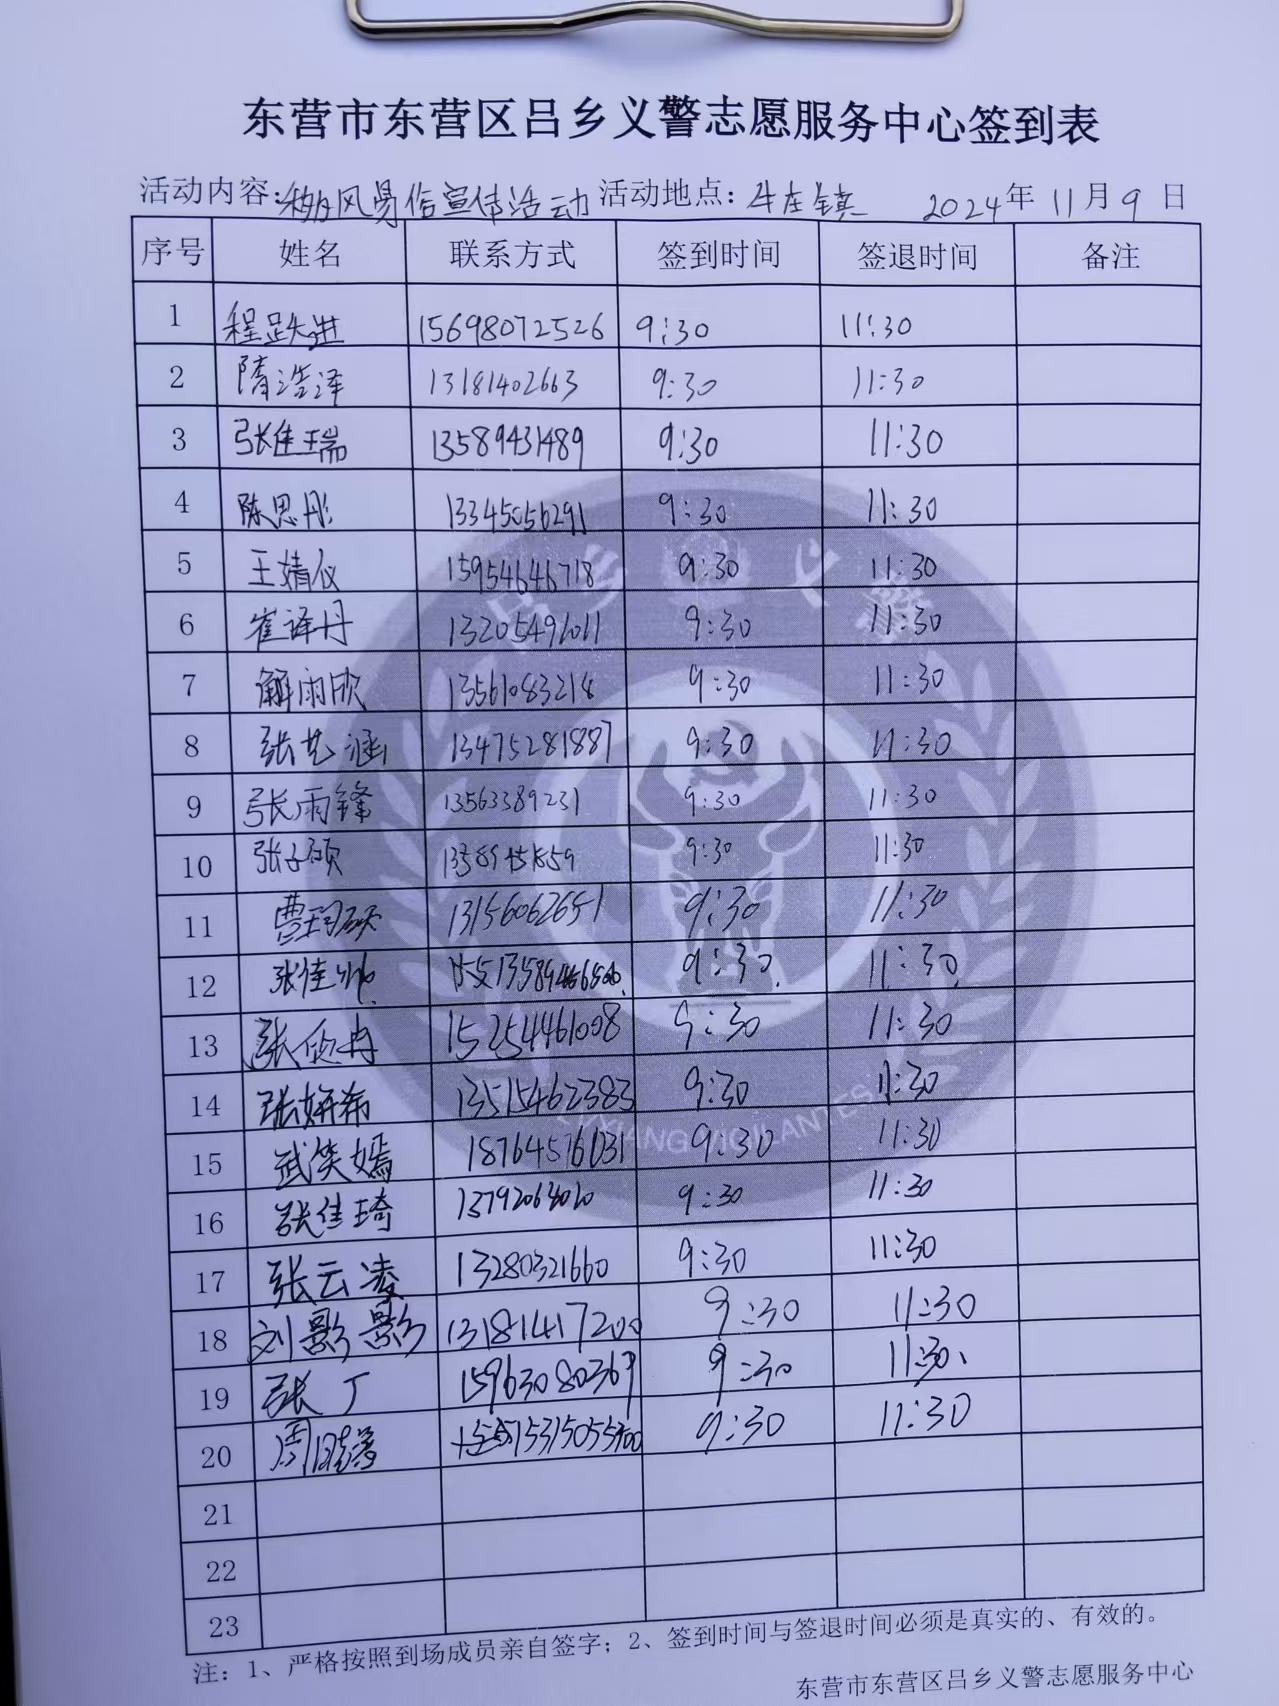 东营市东营区吕乡义警志愿服务中心签到表
活动内容:移风易俗宣传活动 活动地点:牛庄镇 2024年11月9日
序号 姓名 联系方式 签到时间 签退时间 备注
1 程跃进 15698072526 9:30 11:30
2 隋浩泽 13181402663 9:30 11:30
3 张佳瑞 13589431489 9:30 11:30
4 陈思彤 13345056291 9:30 11:30
5 王婧仪 15954646718 9:30 11:30
6 崔译丹 13205491011 9:30 11:30
7 解雨欣 13561083218 9:30 11:30
8 张艺涵 13475281887 9:30 11:30
9 张雨锋 13563389231 9:30 11:30
10 张子硕 9:30 11:30
11 曹 13156062651 9:30 11:30
12 张佳 9:30 11:30
13 张 15254461008 9:30 11:30
14 张妍希 13515462383 9:30 11:30
15 武笑嫣 18764576031 9:30 11:30
16 张佳琦 9:30 11:30
17 张云凌 13280321660 9:30 11:30
18 刘影影 13181417200 9:30 11:30
19 张丁 15963080369 9:30 11:30
20 周 9:30 11:30
21
22
23
注:1、严格按照到场成员亲自签字;2、签到时间与签退时间必须是真实的、有效的。
东营市东营区吕乡义警志愿服务中心
吕乡义警
LVXIANG VIGILANTES